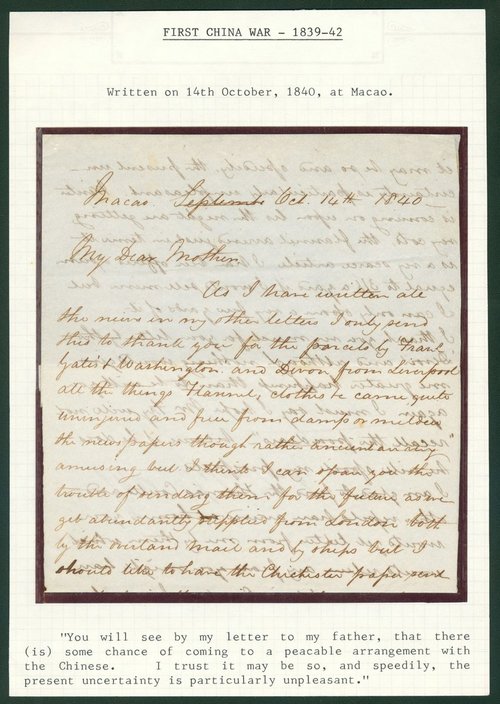 FIRST CHINA WAR - 1839-42
Written on 14th October, 1840, at Macao.
Macao. Septembr Oct. 14th 1840
My Dear Mother,
As I have written all
the news in my other letters I only send
this to thank you for the parcels by
Gates & Washington. and Devon from Liverpool
all the things Flannel, clothes &c came quite
uninjured and free from damp or mildew
the newspapers though rather ancient are very
amusing but I think I can spare you the
trouble of sending them for the future, as we
get abundantly supplied from London both
by the overland mail and by ships but I
should like to have the Chichester paper send
"You will see by my letter to my father, that there
(is) some chance of coming to a peacable arrangement with
the Chinese. I trust it may be so, and speedily, the
present uncertainty is particularly unpleasant."